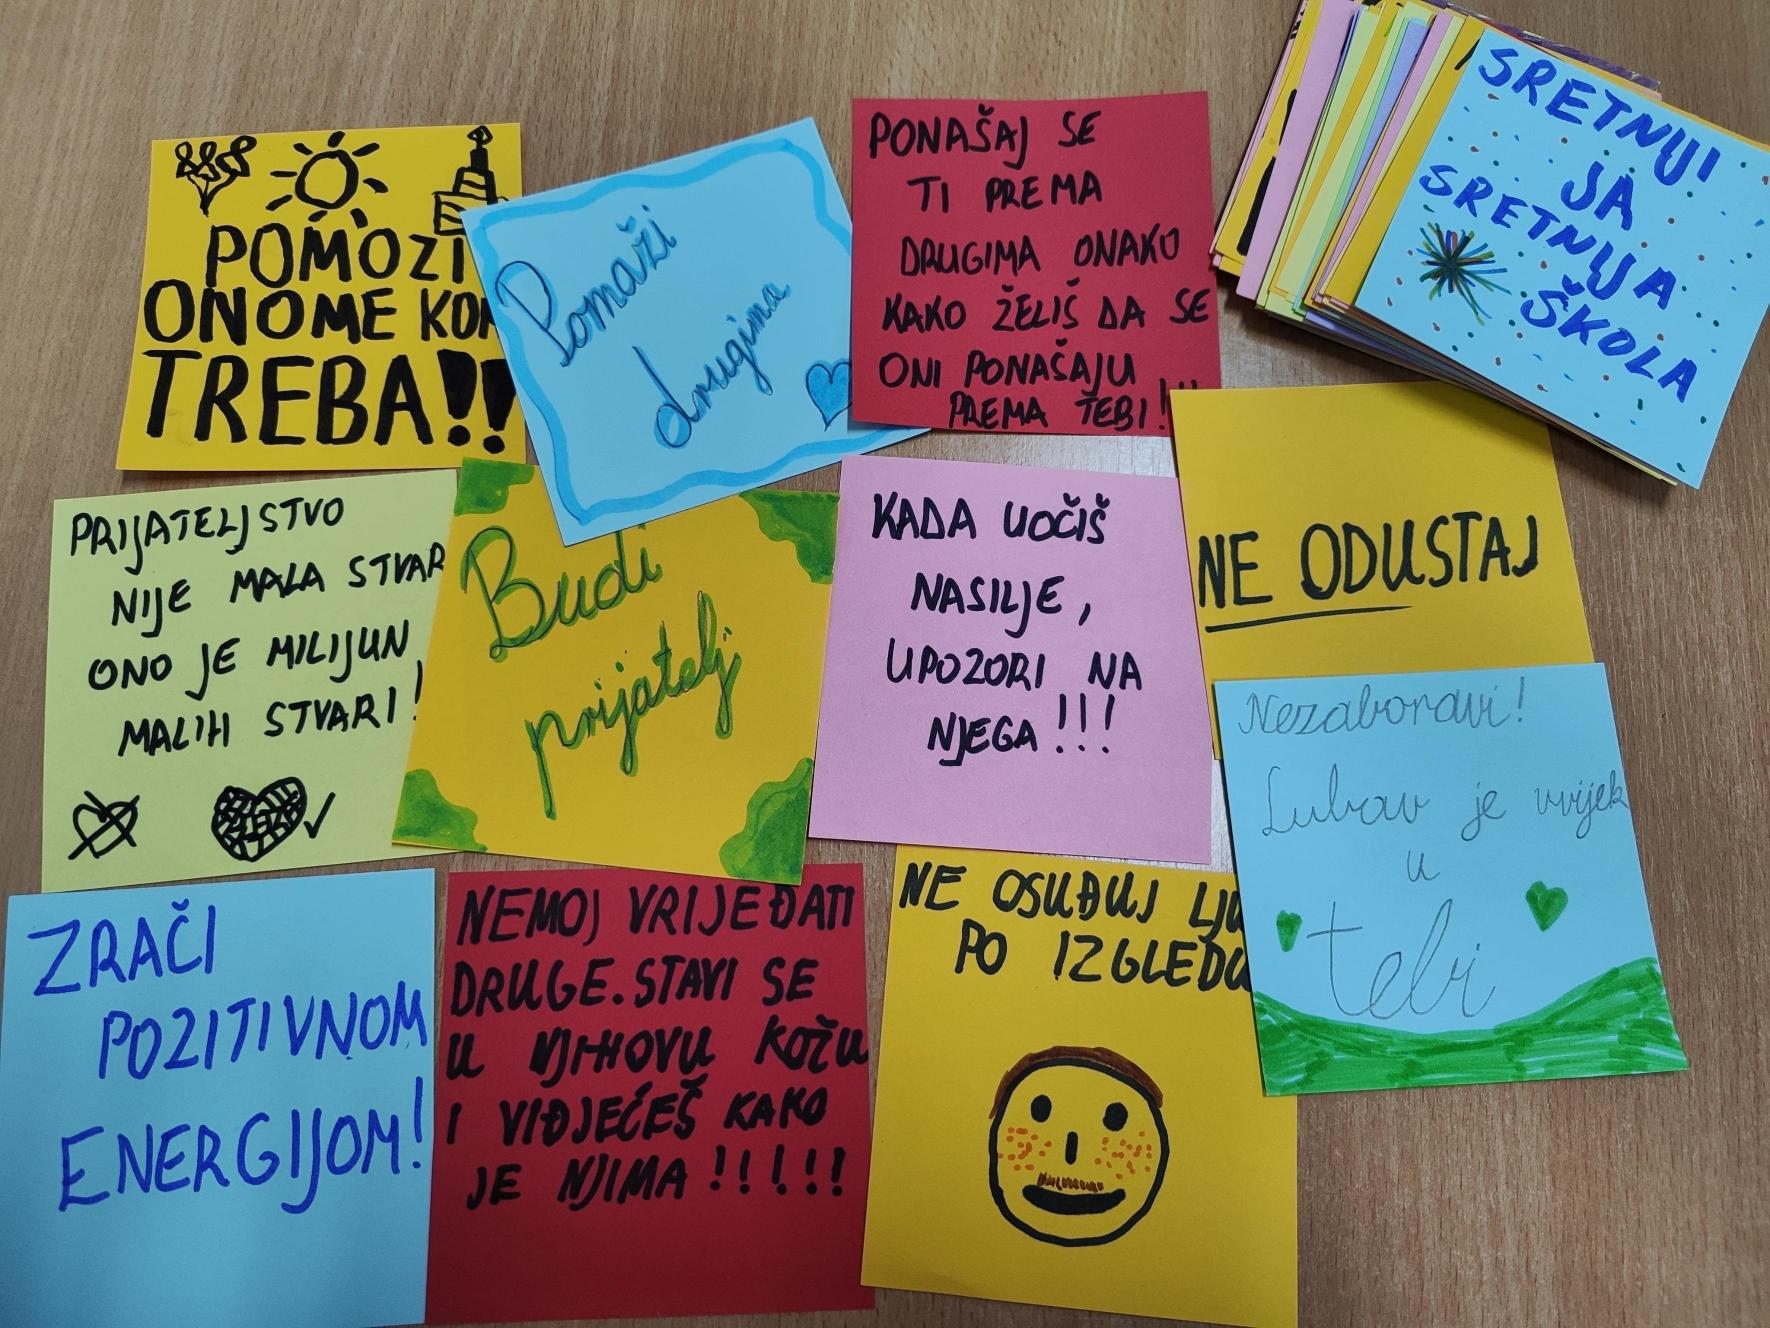 POMOZI
ONOME KOM
TREBA!!
Pomaži
drugima
PONAŠAJ SE
TI PREMA
DRUGIMA ONAKO
KAKO ŽELIŠ DA SE
ONI PONAŠAJU
PREMA TEBI!!!
SRETNIJI
JA
SRETNIJA
ŠKOLA
PRIJATELJSTVO
NIJE MALA STVAR
ONO JE MILIJUN
MALIH STVARI!
Budi
prijatelj
KADA UOČIŠ
NASILJE,
UPOZORI NA
NJEGA!!!
NE ODUSTAJ
Nezaboravi!
Lubav je uvijek
u
tebi
ZRAČI
POZITIVNOM
ENERGIJOM!
NEMOJ VRIJEĐATI
DRUGE. STAVI SE
U NJIHOVU KOŽU
I VIĐJEĆEŠ KAKO
JE NJIMA!!!!!
NE OSUĐUJ LJU
PO IZGLEDU